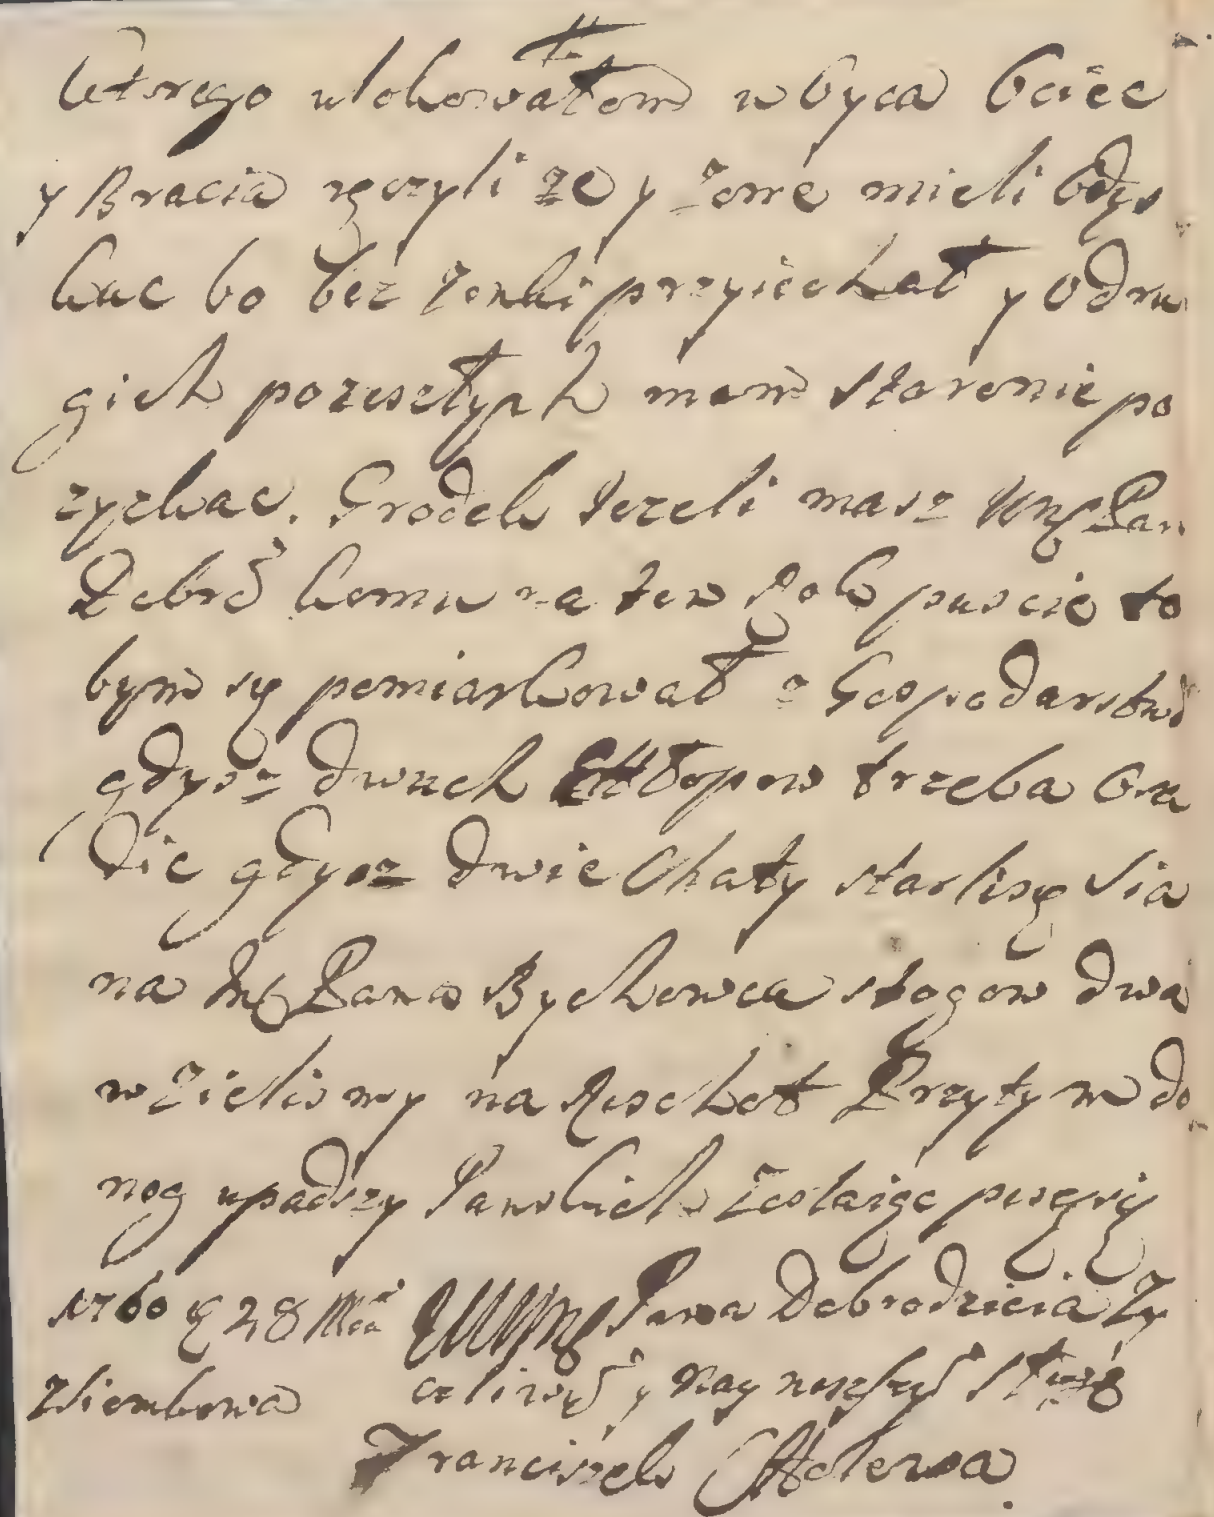 ktorego ulokowałem w byca Ociec
y Bracia ręczyli ze y zone mieli odys
kac bo bez zonki przyiechał y o dru
gich pozeszłych mam staranie po
zyskac. Grodek Jezeli masz WMć Pan
Dobrd komu na ten Rok puscic to
bym się pomiarkował z Gospodarstwē
gdysz dwuch Chłopow trzeba osa
dzic gdysz dwie Chaty starlisę Sia
na Jmć Pana Bychowca stogow dwa
wzielismy na Reschot Przytym do
nog upadszy Panskich Zostaię pisęsię
1760 28 Mca WWMć Pana Dobrodzieia Zy
czliwy y Nay nizszy sługa
Franciszek Cholewa